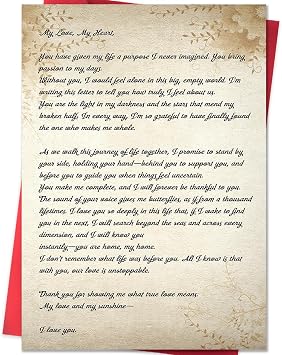 My Love, My Heart,
You have given my life a purpose I never imagined. You bring
passion to my days.
Without you, I would feel alone in this big, empty world. I'm
writing this letter to tell you how truly I feel about us.
You are the light in my darkness and the stars that mend my
broken half. In every way, I'm so grateful to have finally found
the one who makes me whole.
As we walk this journey of life together, I promise to stand by
your side, holding your hand—behind you to support you, and
before you to guide you when things feel uncertain.
You make me complete, and I will forever be thankful to you.
The sound of your voice gives me butterflies, as if from a thousand
lifetimes. I love you so deeply in this life that, if I wake to find
you in the next, I will search beyond the seas and across every
dimension, and I will know you
instantly—you are home, my home.
I don't remember what life was before you. All I know is that
with you, our love is unstoppable.
Thank you for showing me what true love means.
My love and my sunshine—
I love you.